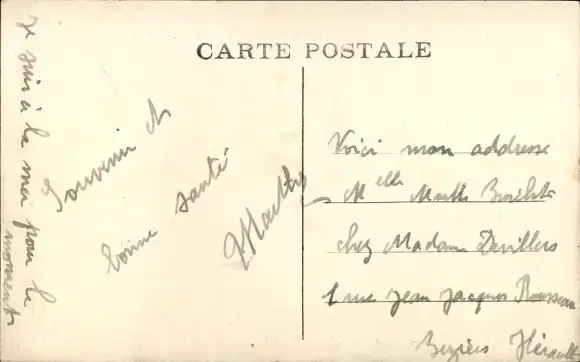 CARTE POSTALE
Je suis à la mer pour le
moment
Souvenir et
bonne santé
Marthe
Voici mon addresse
Melle Marthe
chez Madame Devillers
1 rue Jean Jacques Rousseau
Beziers Hérault